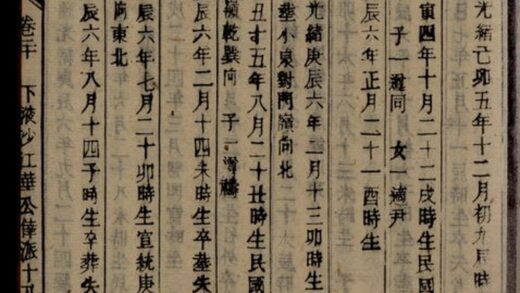 光緒己卯五年十二月初九辰時
寅四年十月二十二戌時生民國
子一 同 女一適尹
辰六年正月二十一酉時生
光緒庚辰六年二月十三卯時生
小泉對門嶺向北
丑十五年八月二十丑時生民國
嶺乾巽向 子一
辰六年二月十四未時生卒墓失
辰六年七月二十卯時生宣統庚
向東北
辰六年八月十四子時生卒葬失
卷三十 下液沙江華公偉派十